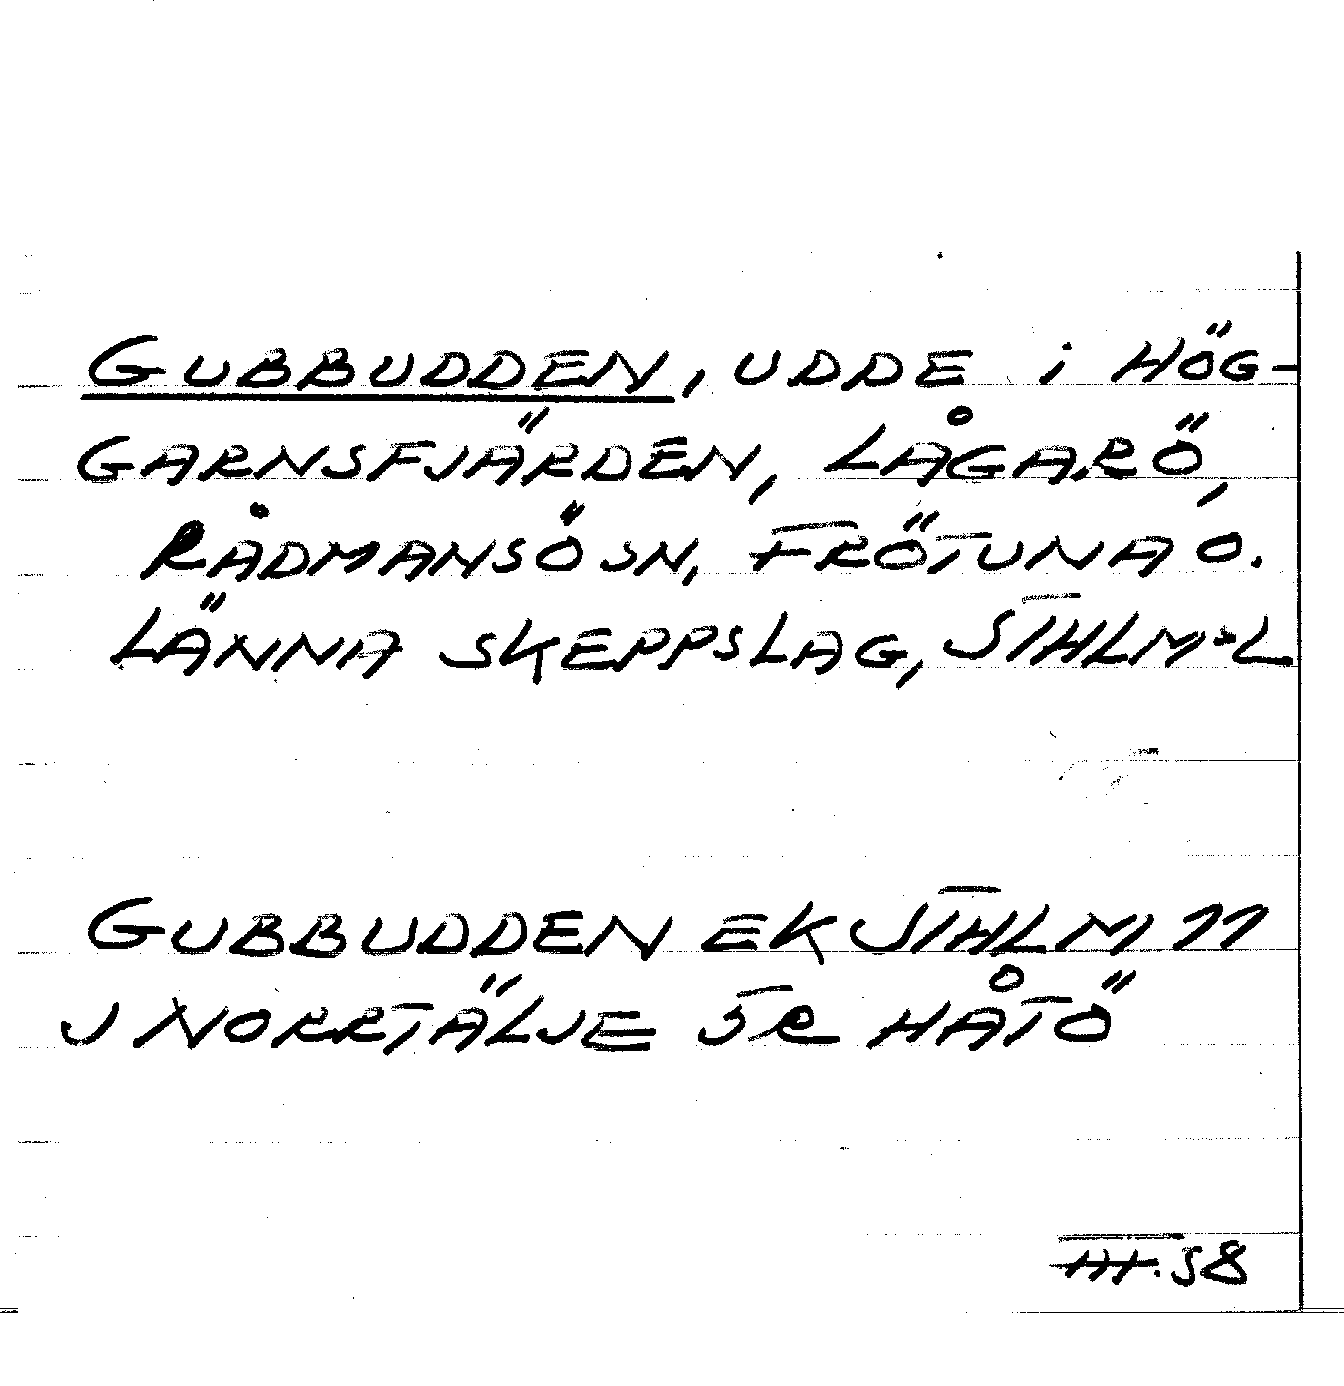 GUBBUDDEN, UDDE i HÖG-
GARNSFJÄRDEN, LÅGARÖ,
RÅDMANSÖ SN, FRÖTUNA O.
LÄNNA SKEPPSLAG, STHLMS L
GUBBUDDEN EK STHLM 77
J NORRTÄLJE SR HÅTÖ